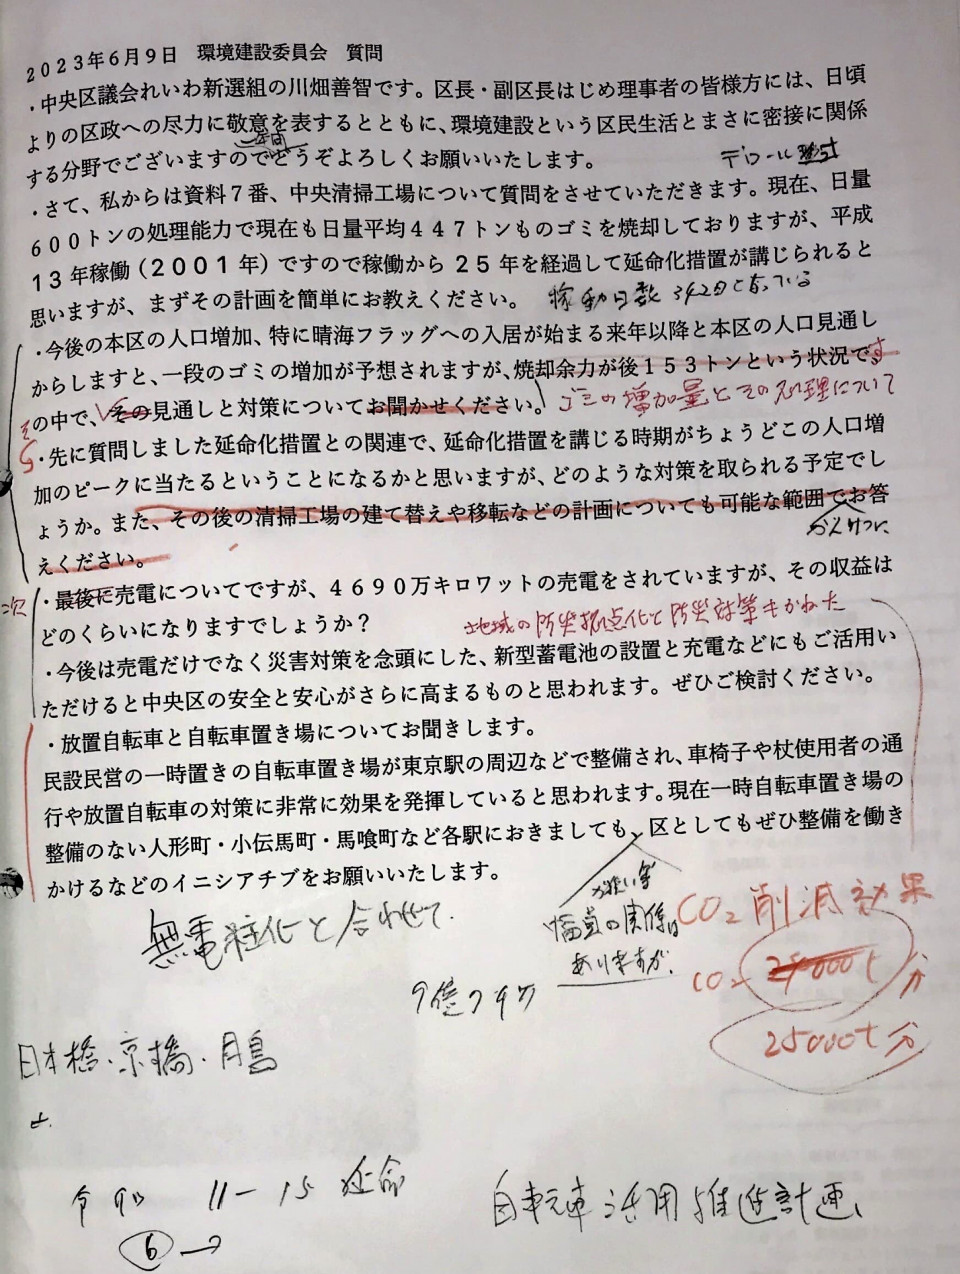 2023年6月9日　環境建設委員会　質問
・中央区議会れいわ新選組の川畑善智です。区長・副区長はじめ理事者の皆様方には、日頃
よりの区政への尽力に敬意を表するとともに、環境建設という区民生活とまさに密接に関係
年間
する分野でございますのでどうぞよろしくお願いいたします。
・さて、私からは資料７番、中央清掃工場について質問をさせていただきます。現在、日量
６００トンの処理能力で現在も日量平均４４７トンものゴミを焼却しておりますが、平成
１３年稼働（２００１年）ですので稼働から２５年を経過して延命化措置が講じられると
思いますが、まずその計画を簡単にお教えください。
稼動日数 342日となっている
・今後の本区の人口増加、特に晴海フラッグへの入居が始まる来年以降と本区の人口見通し
からしますと、一段のゴミの増加が予想されますが、焼却余力が後１５３トンという状況です。
その中で、その見通しと対策についてお聞かせください。
ゴミの増加量とその処理について
・先に質問しました延命化措置との関連で、延命化措置を講じる時期がちょうどこの人口増
加のピークに当たるということになるかと思いますが、どのような対策を取られる予定でし
ょうか。また、その後の清掃工場の建て替えや移転などの計画についても可能な範囲でお答
かんけつに
えください。
次
・最後に売電についてですが、４６９０万キロワットの売電をされていますが、その収益は
どのくらいになりますでしょうか？
地域の防災拠点化と防災対策もかねた
・今後は売電だけでなく災害対策を念頭にした、新型蓄電池の設置と充電などにもご活用い
ただけると中央区の安全と安心がさらに高まるものと思われます。ぜひご検討ください。
・放置自転車と自転車置き場についてお聞きします。
民設民営の一時置きの自転車置き場が東京駅の周辺などで整備され、車椅子や杖使用者の通
行や放置自転車の対策に非常に効果を発揮していると思われます。現在一時自転車置き場の
整備のない人形町・小伝馬町・馬喰町など各駅におきましても、区としてもぜひ整備を働き
かけるなどのイニシアチブをお願いいたします。
幅員の関係は
ありますが、
無電柱化と合わせて
CO2削減効果
CO2 24000t分
25000t分
日本橋・京橋・月島
11－15 延命
6→
自転車活用推進計画、